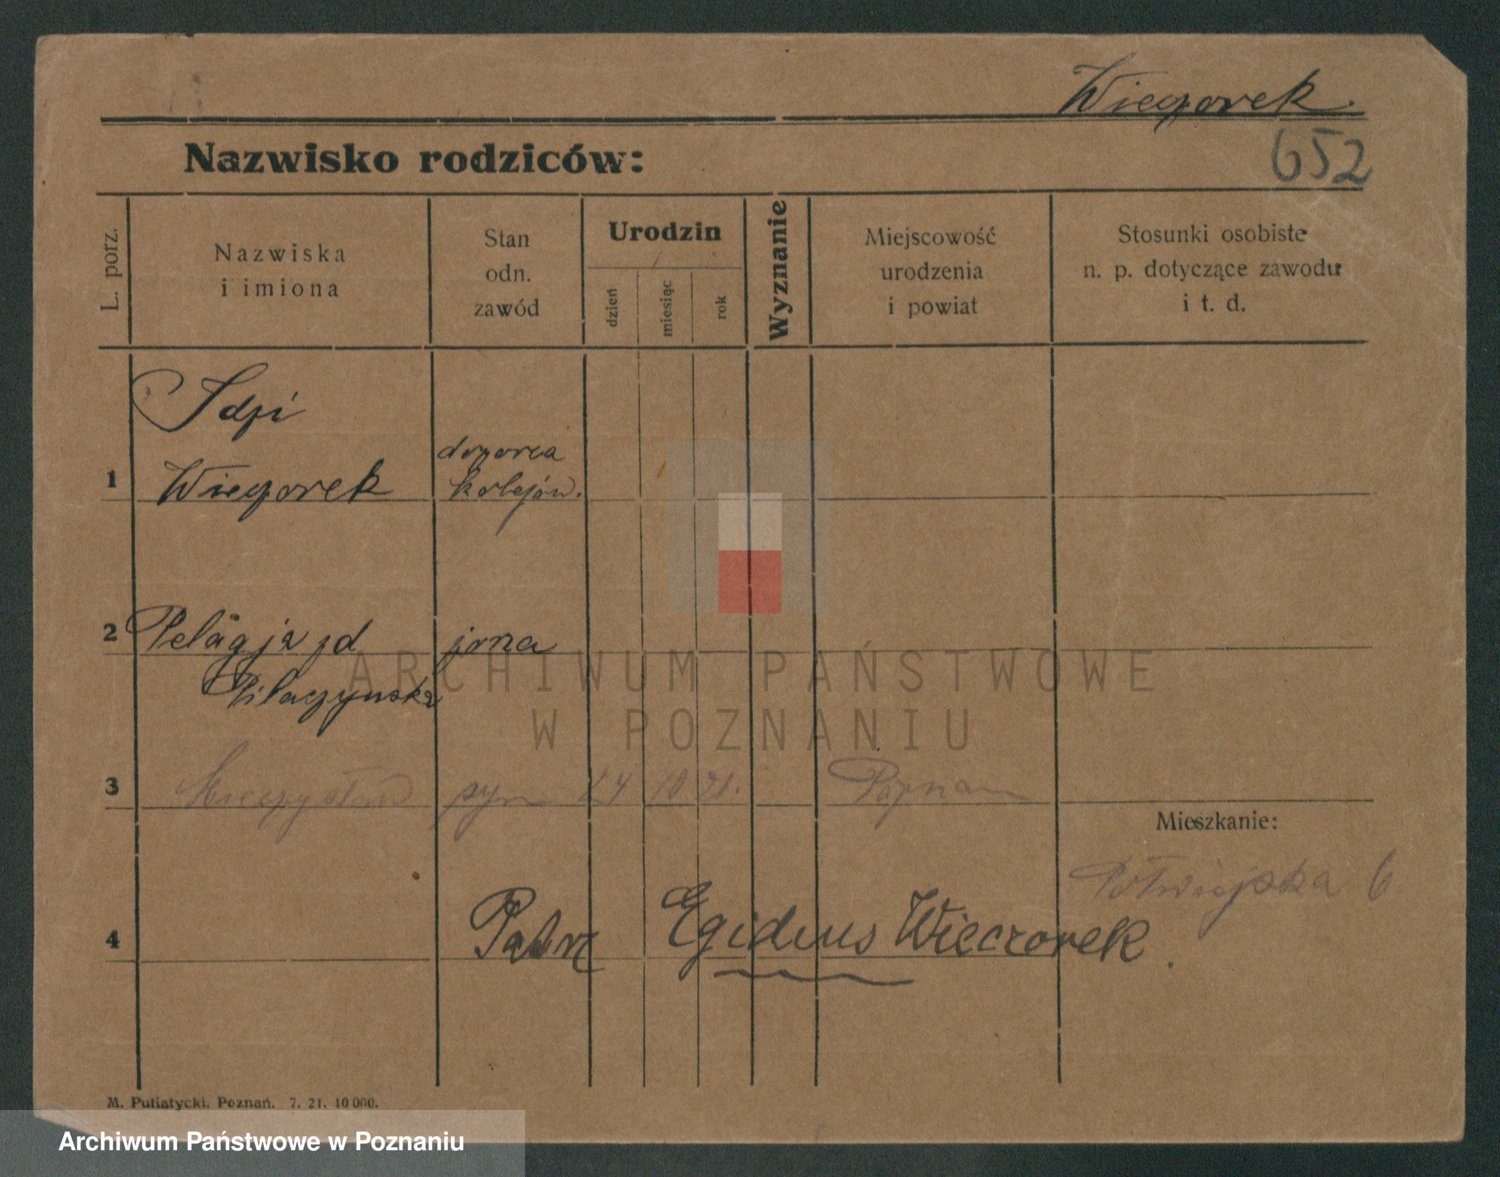 Wieczorek
652
Nazwisko rodziców:
L. porz.
Nazwiska
i imiona
Stan
odn.
zawód
Urodzin
dzień
miesiąc
rok
Wyznanie
Miejscowość
urodzenia
i powiat
Stosunki osobiste
n. p. dotyczące zawodu
i t. d.
Idzi
1 Wieczorek
dozorca
kolejow.
2 Pelagja zd żona
Pilaczynska
3 Mieczysław syn 24 10 21. Poznań
Mieszkanie:
6
4 Patrz Egidius Wieczorek.
M. Putiatycki. Poznań. 7. 21. 10 000.
ARCHIWUM PAŃSTWOWE
W POZNANIU
Archiwum Państwowe w Poznaniu